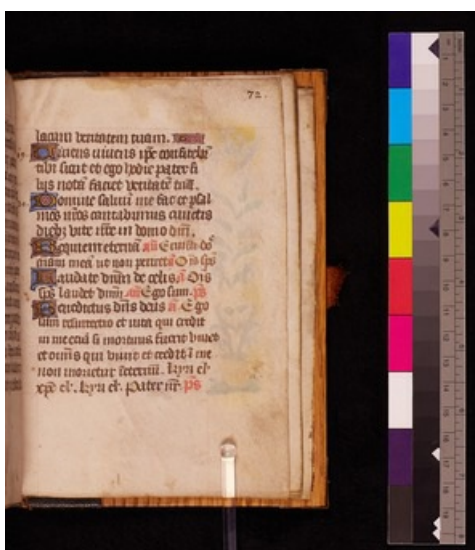 72.
tacam veritatem tuam.
Vivens vivens ipse confitebit
tibi sicut et ego hodie pater fi
liis notā faciet veritatē tuā.
Domine salvū me fac et psal
mos nros cantabimus cunctis
diebȝ vite nre in domo dni.
Requiem eternā añ Eruisti do
mine aīam meā ut non periret añ Ois sps
Laudate dnm de celis añ Ois
sps laudet dnm añ Ego sum ps
Benedictus dns deus añ Ego
sum resurrectio et vita qui credit
in me etiā si mortuus fuerit vivet
et omīs qui vivit et credit ī me
non morietur ī eternū. kyri el'
xpē el'. kyri el'. Pater nr. ps